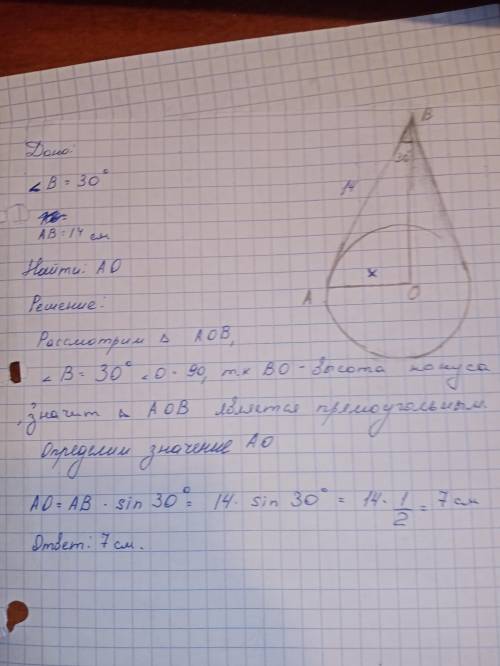 Дано:
∠B = 30°
AB = 14 см
Найти: AO
Решение:
Рассмотрим △ AOB,
∠B = 30° ∠O = 90, т.к BO - высота конуса
, значит △ AOB является прямоугольным.
Определим значение AO
AO = AB · sin 30° = 14 · sin 30° = 14 · 1/2 = 7 см
Ответ: 7 см.
B
30°
14
x
A
O